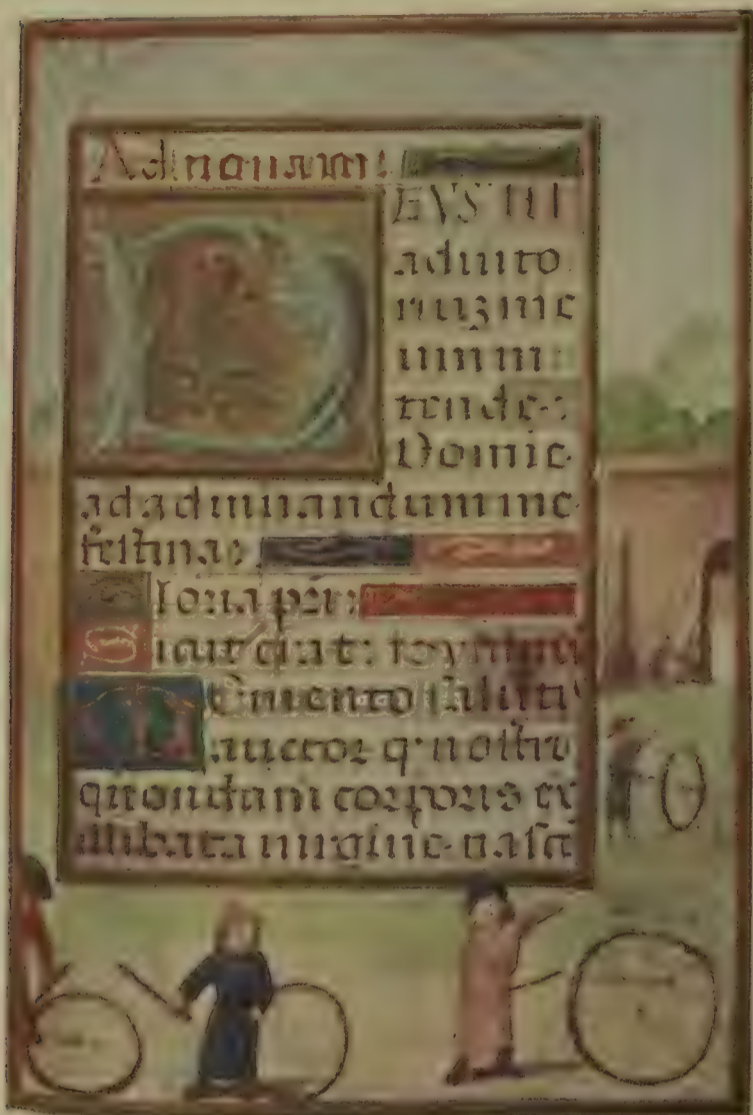 Ad nonam:
EVS in
adiuto
riuz me
um in
tende:
Domie
ad adiuuandum me
festina:
loria pri:
icut erat:
Emento salutis
auctor q nostri
quondam corporis ex
illibata uirgine nasce